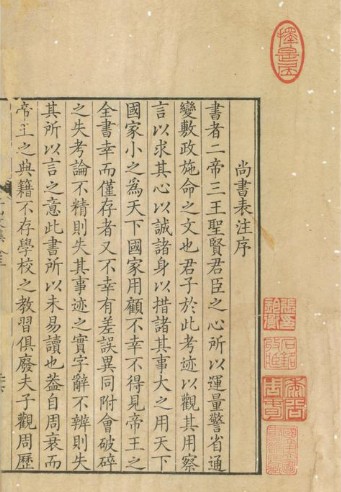 尚書表注序
書者二帝三王聖賢君臣之心所以運量警省通
變敷政施命之文也君子於此考迹以觀其用察
言以求其心以誠諸身以措諸其事大之用天下
國家小之為天下國家用顧不幸不得見帝王之
全書幸而僅存者又不幸有差誤異同附會破碎
之失考論不精則失其事迹之實字辭不辨則失
其所以言之意此書所以未易讀也蓋自周衰而
帝王之典籍不存學校之教習俱廢夫子觀周歷